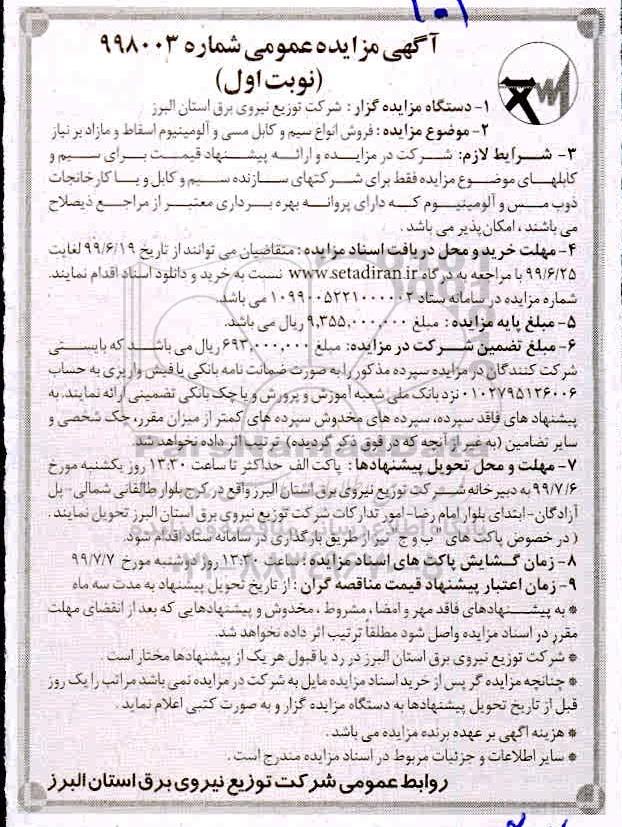 آگهی مزایده عمومی شماره ۹۹۸۰۰۳
(نوبت اول)
۱- دستگاه مزایده گزار : شرکت توزیع نیروی برق استان البرز
۲- موضوع مزایده : فروش انواع سیم و کابل مسی و آلومینیوم اسقاط و مازاد بر نیاز
۳- شرایط لازم: شرکت در مزایده و ارائه پیشنهاد قیمت برای سیم و
کابلهای موضوع مزایده فقط برای شرکتهای سازنده سیم و کابل و یا کارخانجات
ذوب مس و آلومینیوم که دارای پروانه بهره برداری معتبر از مراجع ذیصلاح
می باشند ، امکان پذیر می باشد .
۴- مهلت خرید و محل دریافت اسناد مزایده : متقاضیان می توانند از تاریخ ۹۹/۶/۱۹ لغایت
۹۹/۶/۲۵ با مراجعه به درگاه www.setadiran.ir نسبت به خرید و دانلود اسناد اقدام نمایند.
شماره مزایده در سامانه ستاد ۱۰۹۹۰۰۵۲۲۱۰۰۰۰۰۲ می باشد.
۵- مبلغ پایه مزایده : مبلغ ۹,۳۵۵,۰۰۰,۰۰۰ ریال می باشد.
۶- مبلغ تضمین شرکت در مزایده: مبلغ ۶۹۳,۰۰۰,۰۰۰ ریال می باشد که بایستی
شرکت کنندگان در مزایده سپرده مذکور را به صورت ضمانت نامه بانکی یا فیش واریزی به حساب
۰۱۰۲۷۹۵۱۲۶۰۰۶ نزد بانک ملی شعبه آموزش و پرورش و یا چک بانکی تضمینی ارائه نمایند. به
پیشنهاد های فاقد سپرده، سپرده های مخدوش سپرده های کمتر از میزان مقرر، چک شخصی و
سایر تضامین (به غیر از آنچه که در فوق ذکر گردیده) ترتیب اثر داده نخواهد شد
۷- مهلت و محل تحویل پیشنهادها : پاکت الف حداکثر تا ساعت ۱۳:۳۰ روز یکشنبه مورخ
۹۹/۷/۶ به دبیرخانه شرکت توزیع نیروی برق استان البرز واقع در کرج بلوار طالقانی شمالی- پل
آزادگان- ابتدای بلوار امام رضا- امور تدارکات شرکت توزیع نیروی برق استان البرز تحویل نمایند .
( در خصوص پاکت های "ب و ج" نیز از طریق بارگذاری در سامانه ستاد اقدام شود.
۸- زمان گشایش پاکت های اسناد مزایده : ساعت ۱۳:۳۰ روز دوشنبه مورخ ۹۹/۷/۷
۹- زمان اعتبار پیشنهاد قیمت مناقصه گران : از تاریخ تحویل پیشنهاد به مدت سه ماه
* به پیشنهادهای فاقد مهر و امضا، مشروط ، مخدوش و پیشنهادهایی که بعد از انقضای مهلت
مقرر در اسناد مزایده واصل شود مطلقاً ترتیب اثر داده نخواهد شد.
* شرکت توزیع نیروی برق استان البرز در رد یا قبول هر یک از پیشنهادها مختار است .
* چنانچه مزایده گر پس از خرید اسناد مزایده مایل به شرکت در مزایده نمی باشد مراتب را یک روز
قبل از تاریخ تحویل پیشنهادها به دستگاه مزایده گزار و به صورت کتبی اعلام نماید .
* هزینه آگهی بر عهده برنده مزایده می باشد .
* سایر اطلاعات و جزئیات مربوط در اسناد مزایده مندرج است .
روابط عمومی شرکت توزیع نیروی برق استان البرز